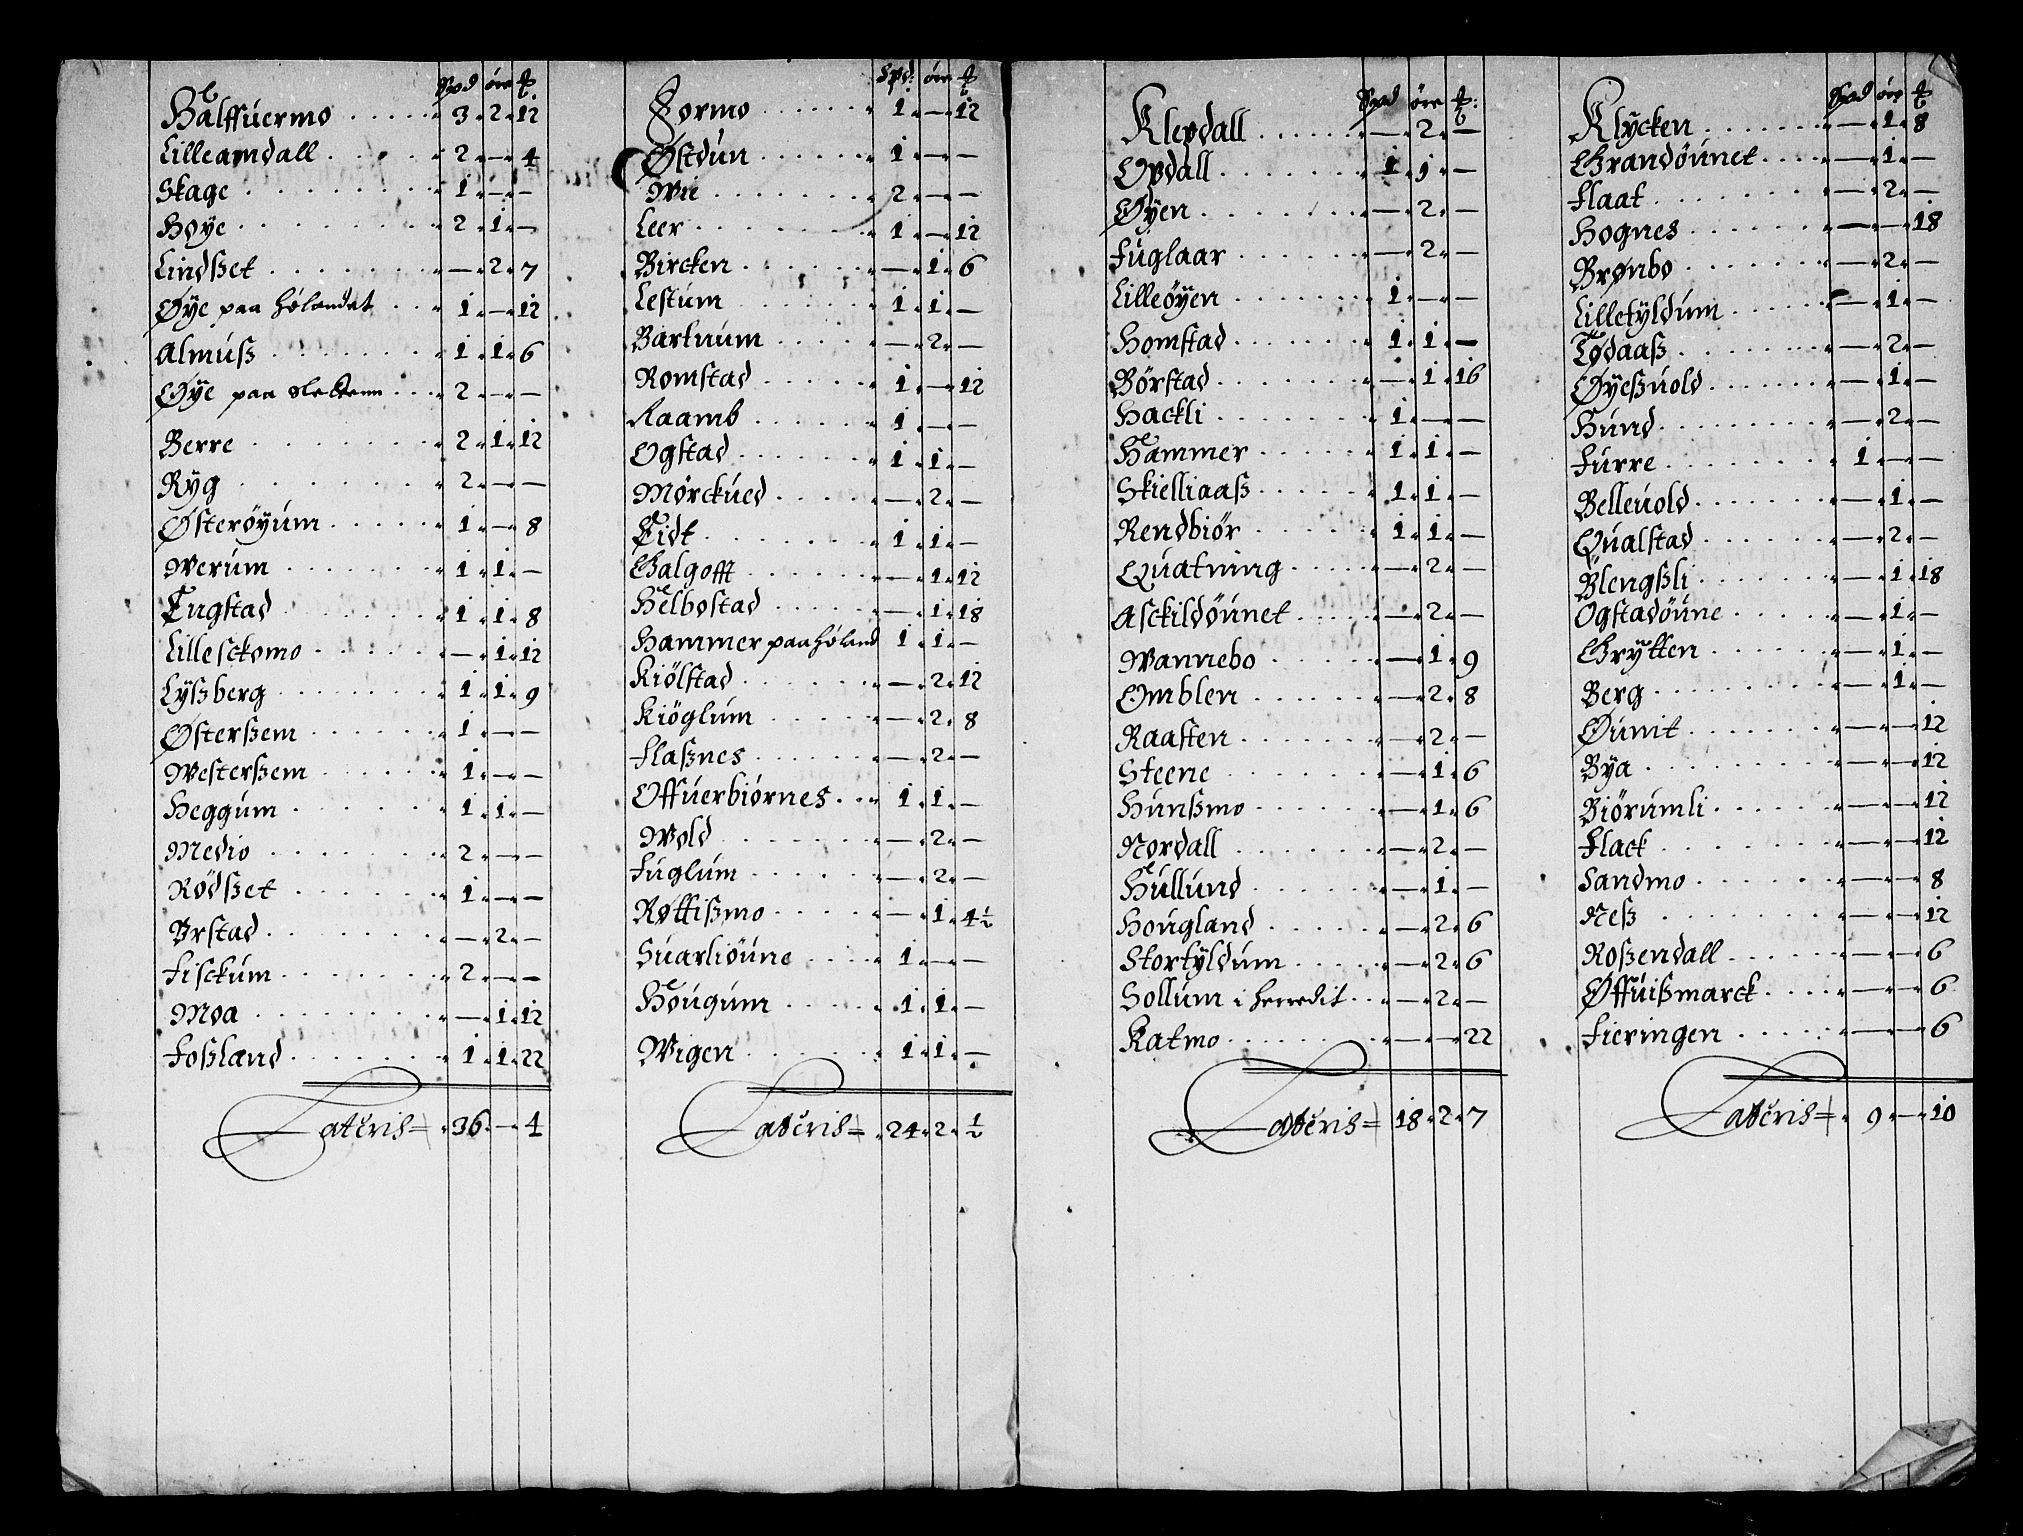 Spd öre ℔
Halffuermo 3 2 12
Lilleamdall 2 — 4
Skage 1 — —
Høye 2 1 —
Lindßet — 2 7
Øye paa hølandet 1 — 12
Almuß 1 1 6
Øye paa slettenn 2 — —
Berre 2 1 12
Ryg 2 — —
Østerøyum 1 — 8
Werum 1 1 —
Tugstad 1 1 8
Lillesckomo — 1 12
Lyßberg 1 1 9
Østerßem 1 — —
Westerßem 1 — —
Heggum 1 1 —
Medio 2 — —
Rödßet 1 — —
Vrstad — 2 —
Fisckum 2 — —
Moa — 1 12
Foßland 1 1 22
Lateris 36 — 4
Spd: öre ℔
Formo 1 — 12
Østdun 1 — —
Wie 2 — —
Leer 1 — 12
Bircken — 1 6
Lestum 1 1 —
Bartnum — 2 —
Romstad 1 — 12
Raamb 1 — —
Ogstad 1 1 —
Mørckued — 2 —
Eidt 1 1 —
Galgofft — 1 12
Helbostad — 1 18
Hammer paa høland 1 1 —
Kiölstad — 2 12
Kiöglum — 2 8
Flaßnes — 2 —
Offuerbiörnes 1 1 —
Wold — 2 —
Fuglum — 2 —
Røttißmo — 1 4½
Suarliöune 1 — —
Hougum 1 1 —
Wigen 1 1 —
Lateris 24 2 ½
Spd öre ℔:
Klepdall — 2 —
Opdall 1 1 —
Øyen — 2 —
Fuglaar — 2 —
Lilleöyen 1 — —
Homstad 1 1 —
Börstad — 1 16
Hackli 1 — —
Hammer 1 1 —
Skielliaaß 1 1 —
Rendbiör 1 1 —
Quatning — 2 —
Asckildöunet — 2 —
Wannebo — 1 9
Omblen — 2 8
Raasten — 2 —
Steene — 1 6
Hunßmo — 1 6
Nordall — 2 —
Hullund — 1 —
Hougland — 2 6
Stortyldum — 2 6
Sollum i herredit — 2 —
Katmo — — 22
Lateris 18 2 7
Spd öre ℔
Klycken — 1 8
Grandöunet — 1 —
Flaat — 2 —
Hognes — — 18
Brønbo — 2 —
Lilletyldum — 1 —
Tødaaß — 2 —
Øyeßuold — 1 —
Hund — 2 —
Furre 1 — —
Belleuold — 1 —
Qualstad — 2 —
Blengßli — 1 18
Ogstadöune — 1 —
Grytten — 1 —
Berg — 1 —
Øunit — — 12
Bya — — 12
Biörumli — — 12
Flack — — 12
Sandmo — — 8
Neß — — 12
Roßendall — — 6
Øffuißmarck — — 6
Fieringen — — 6
Lateris 9 — 10